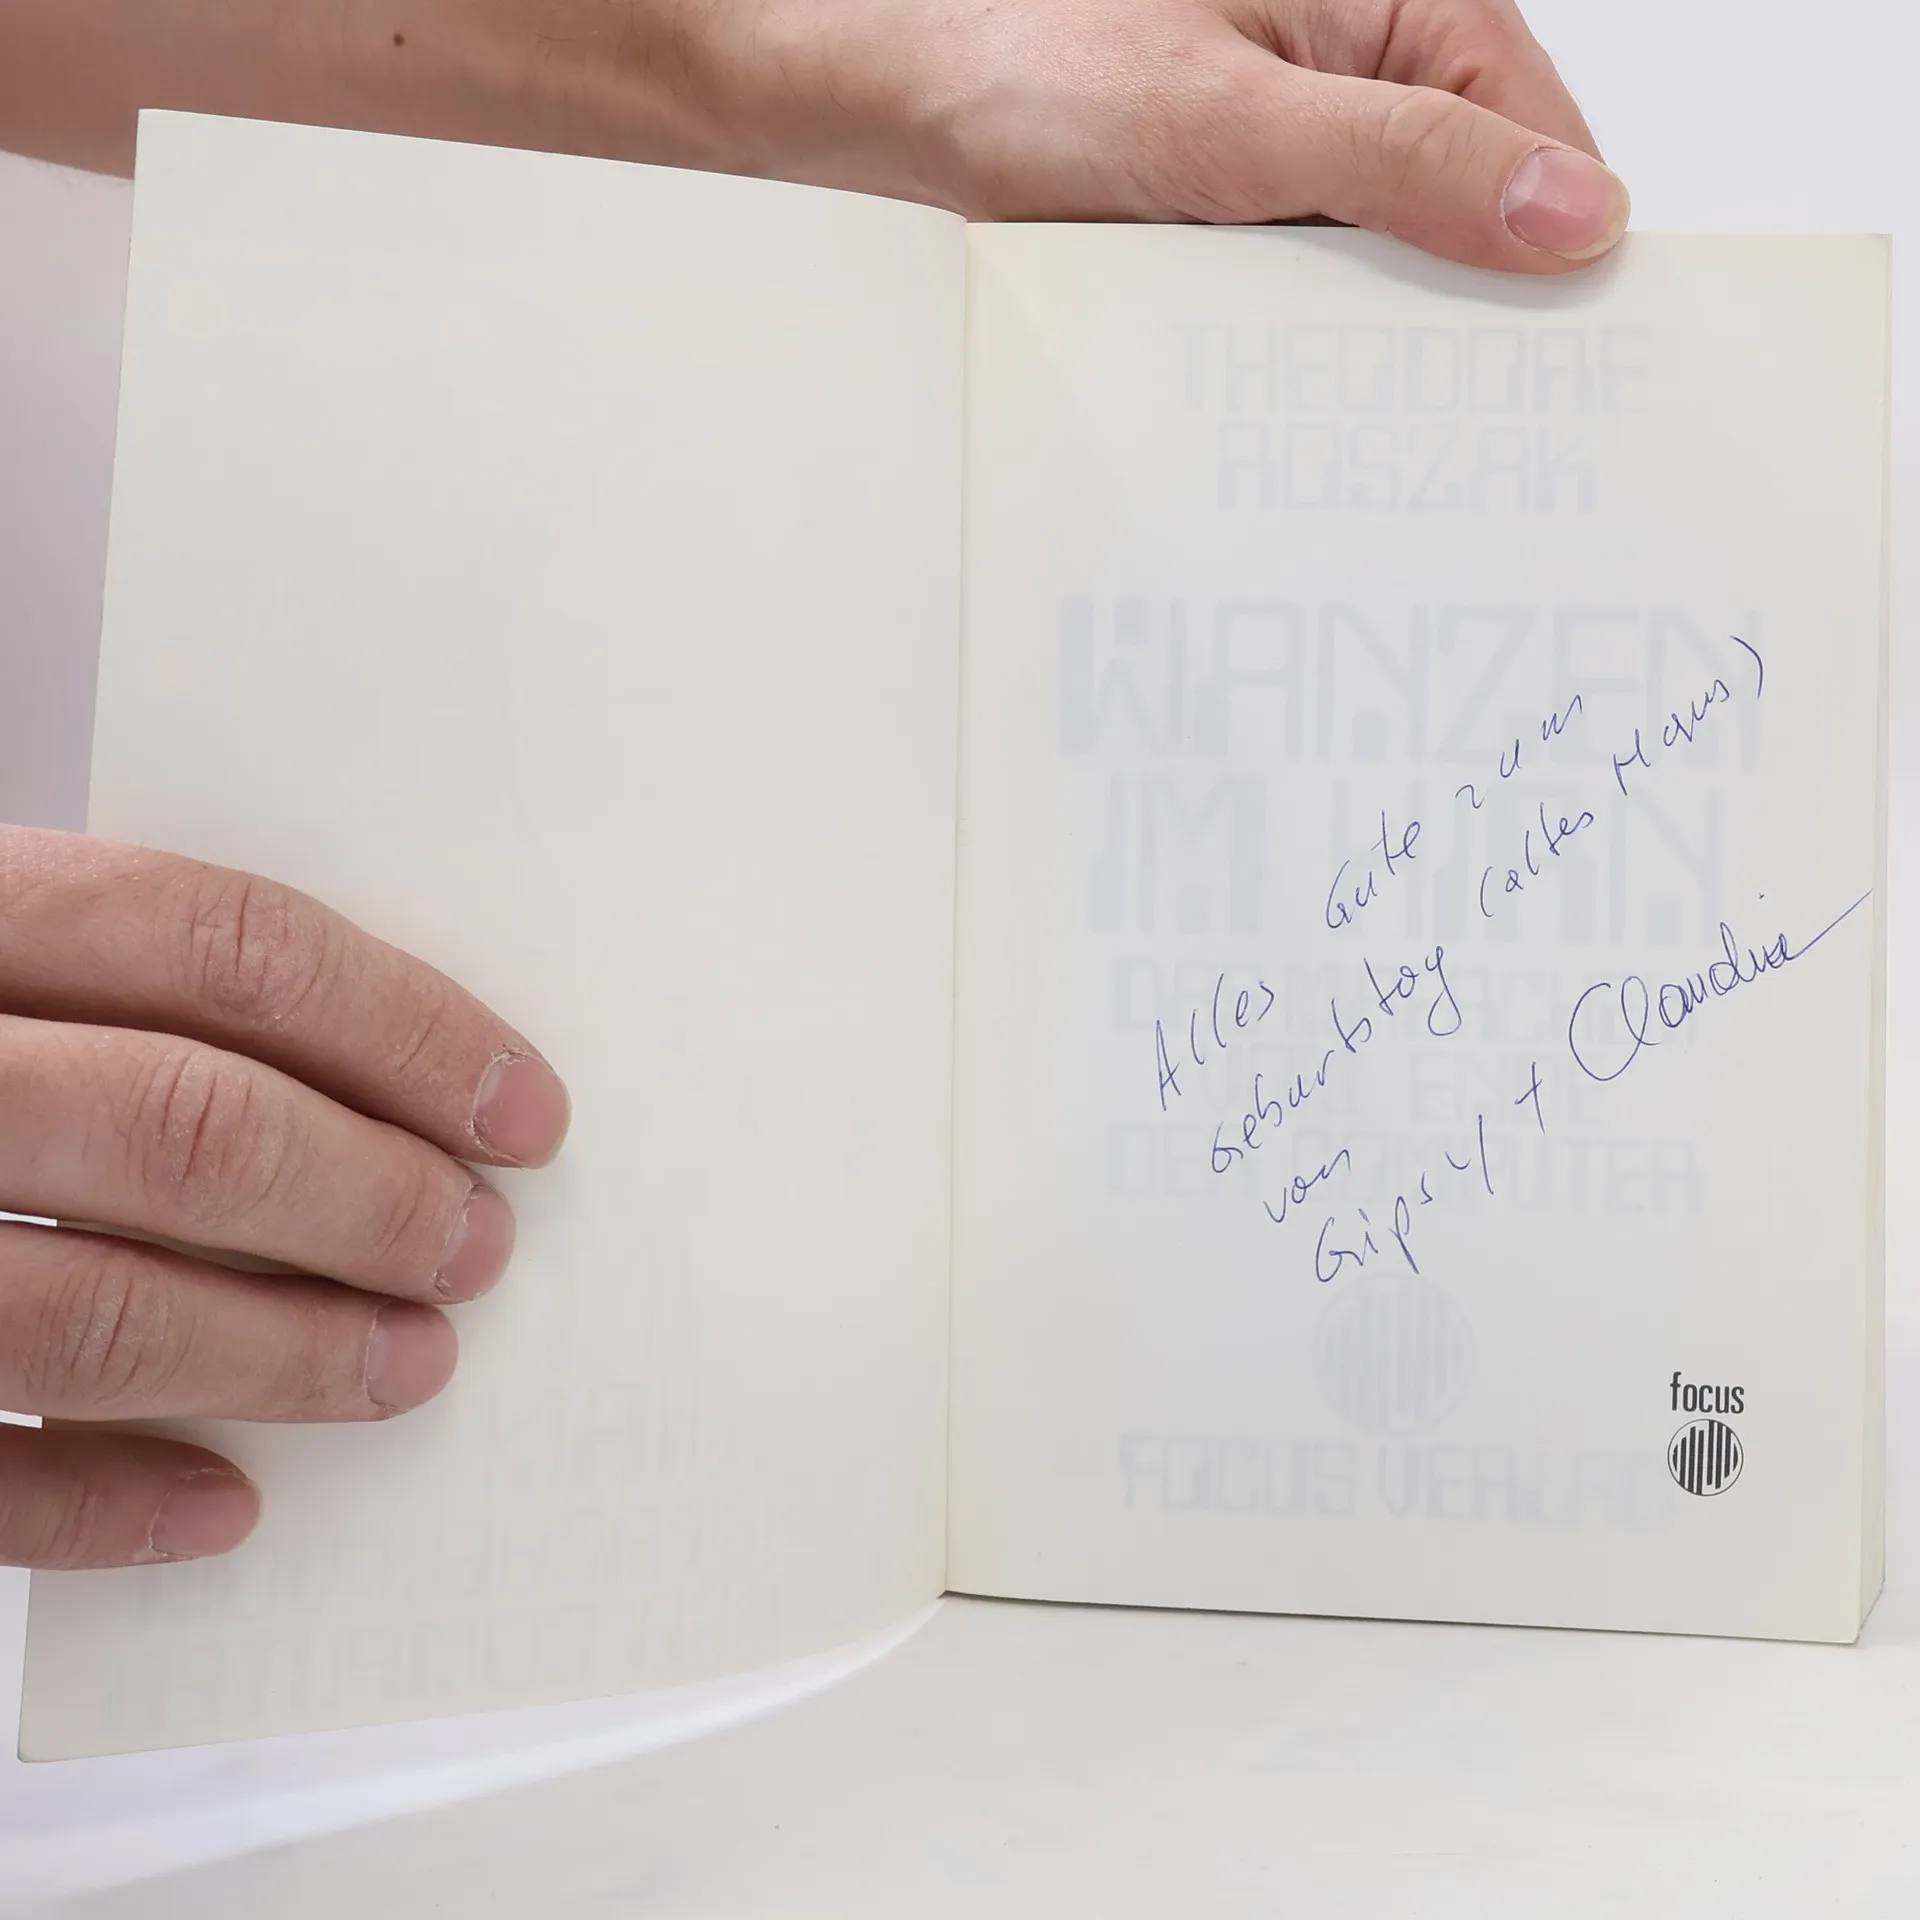 THEODORE
ROSZAK
WANZEN
IM HIRN
Alles Gute zum
Geburtstag (altes Haus)
von
Gipsy + Claudia
VOM ENDE
DER COMPUTER
focus
FOCUS VERLAG